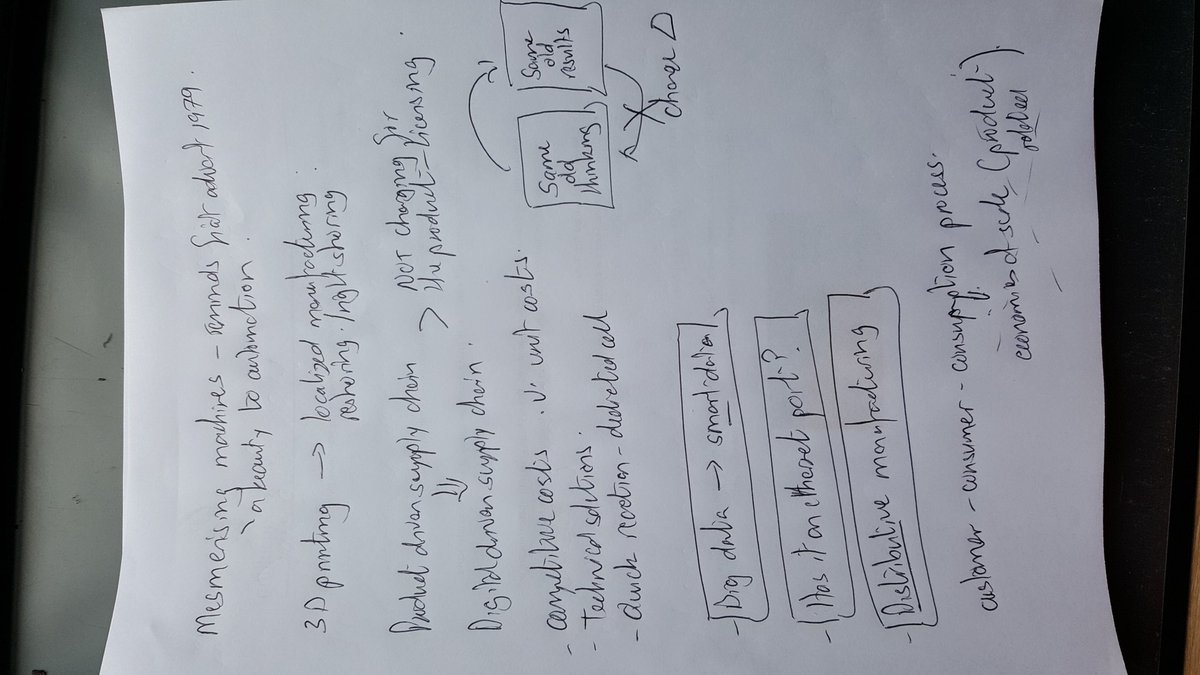 Mesmerising machines - reminds fiat advert 1979.
'a beauty to automation.
3D printing → localized manufacturing.
reshoring. rightshoring
Product driven supply chain > NOT changing for
the product - licensing.
Digital driven supply chain.
Same old thinking
Same old results
change Δ
- competitive costs. v. unit costs.
- Technical solutions.
- Quick reaction - dedicated cell
- Big data → smart data
- Has it an ethernet port?
- Distributive manufacturing
customer - consumer - consumption process.
economies of scale (product -
related).